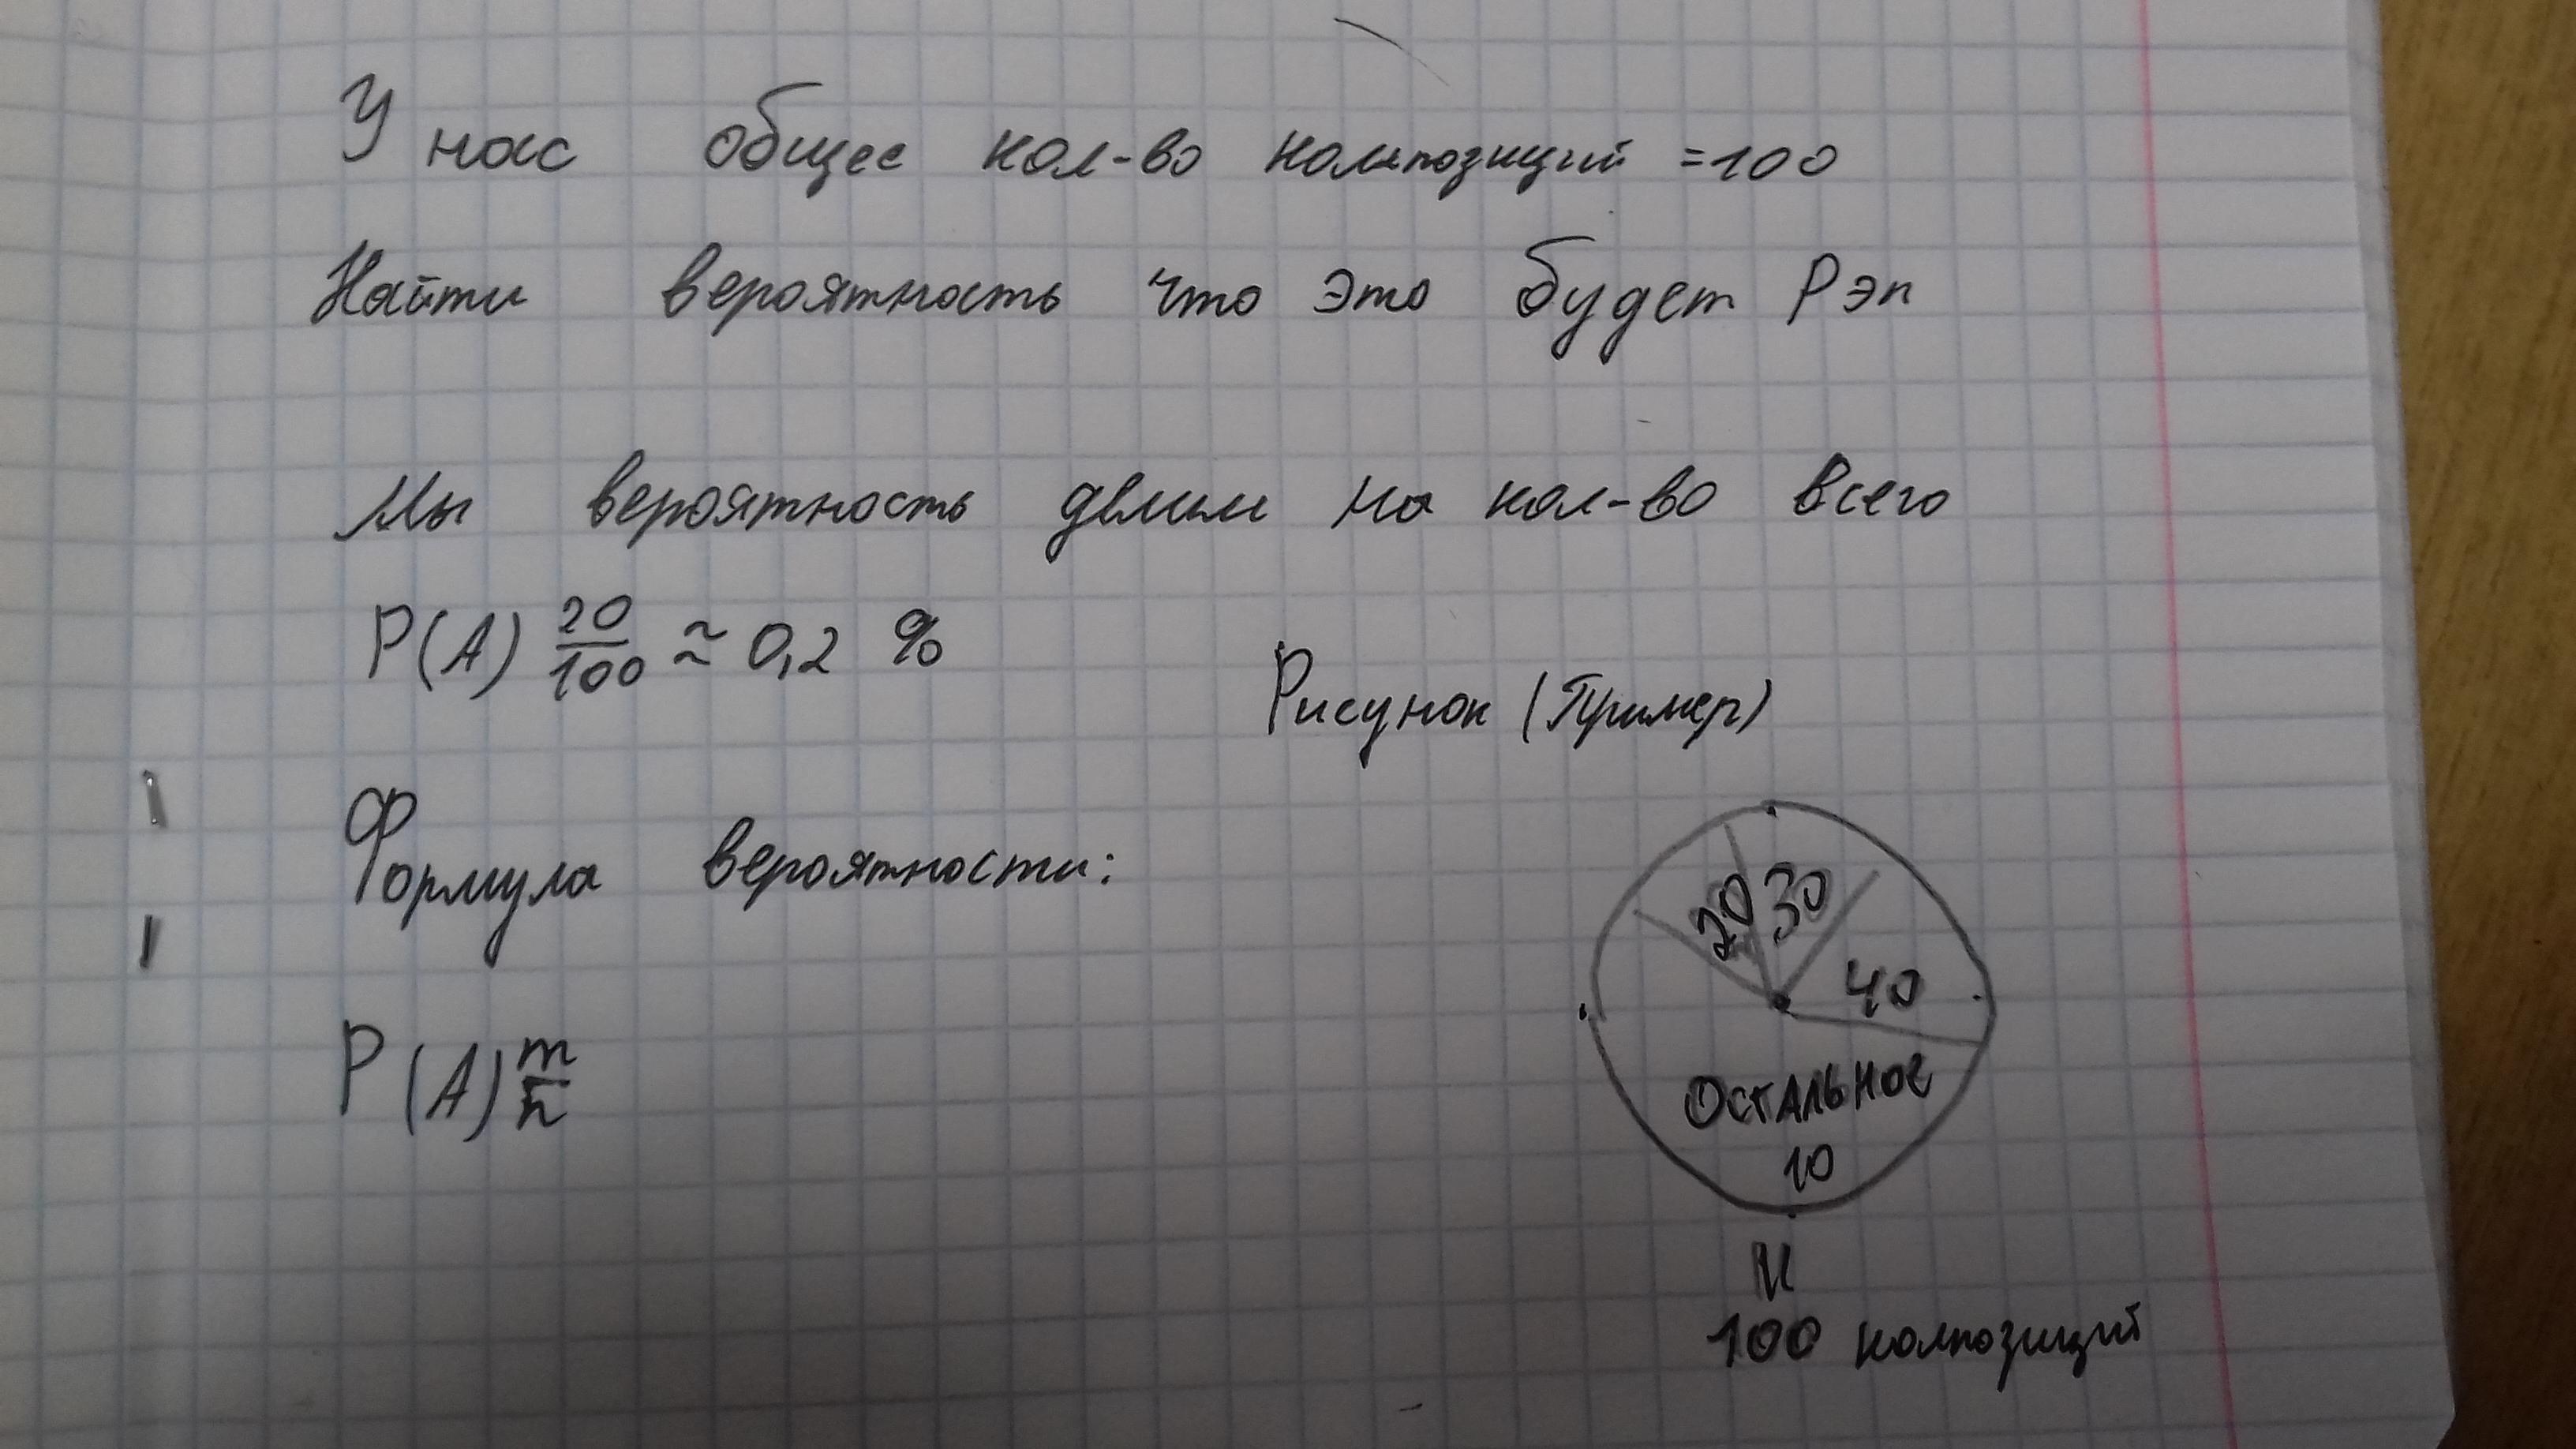 У нас общее кол-во композиций =100
Найти вероятность что это будет Рэп
Мы вероятность делим на кол-во всего
P(A) 20/100 ≈ 0,2 %
Рисунок (Пример)
Формула вероятности:
P(A) m/n
20 30
40
ОСТАЛЬНОЕ
10
100 композиций